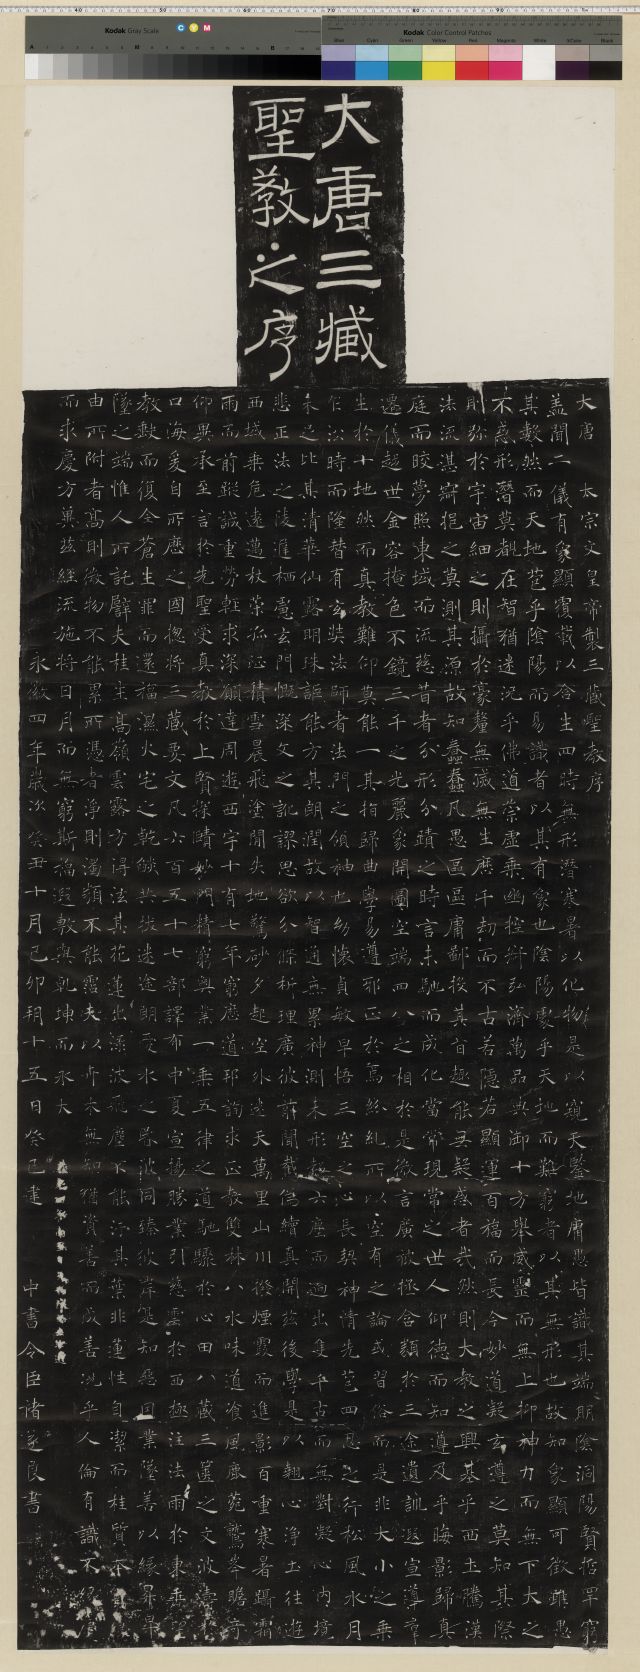 大唐三藏
聖教之序
大唐 太宗文皇帝製三藏聖教序
盖聞二儀有象顯覆載以含生四時無形潛寒暑以化物是以窺天鑒地庸愚皆識其端明陰洞陽賢哲罕窮
其數然而天地苞乎陰陽而易識者以其有象也陰陽處乎天地而難窮者以其無形也故知象顯可徵雖愚
不惑形潛莫覩在智猶迷況乎佛道崇虛乘幽控寂弘濟萬品典御十方舉威靈而無上抑神力而無下大之
則彌於宇宙細之則攝於豪釐無滅無生歷千劫而不古若隱若顯運百福而長今妙道凝玄遵之莫知其際
法流湛寂挹之莫測其源故知蠢蠢凡愚區區庸鄙投其旨趣能無疑惑者哉然則大教之興基乎西土騰漢
庭而皎夢照東域而流慈昔者分形分蹟之時言未馳而成化當常現常之世人仰德而知遵及乎晦影歸真
遷儀越世金容掩色不鏡三千之光麗象開圖空端四八之相於是微言廣被拯含類於三途遺訓遐宣導羣
生於十地然而真教難仰莫能一其指歸曲學易遵邪正於焉紛糺所以空有之論或習俗而是非大小之乘
乍沿時而隆替有玄奘法師者法門之領袖也幼懷貞敏早悟三空之心長契神情先苞四忍之行松風水月
未足比其清華仙露明珠詎能方其朗潤故以智通無累神測未形超六塵而迥出隻千古而無對凝心內境
悲正法之陵遲栖慮玄門慨深文之訛謬思欲分條析理廣彼前聞截偽續真開茲後學是以翹心淨土往遊
西域乘危遠邁杖策孤征積雪晨飛塗閒失地驚砂夕起空外迷天萬里山川撥煙霞而進影百重寒暑躡霜
雨而前蹤誠重勞輕求深願達周遊西宇十有七年窮歷道邦詢求正教雙林八水味道飡風鹿菀鷲峯瞻奇
仰異承至言於先聖受真教於上賢探賾妙門精窮奧業一乘五律之道馳驟於心田八藏三篋之文波濤於
口海爰自所歷之國揔將三藏要文凡六百五十七部譯布中夏宣揚勝業引慈雲於西極注法雨於東垂聖
教缺而復全蒼生罪而還福濕火宅之乾燄共拔迷途朗愛水之昏波同臻彼岸是知惡因業墜善以緣昇昇
墜之端惟人所託譬夫桂生高嶺雲露方得泫其花蓮出淥波飛塵不能汙其葉非蓮性自潔而桂質本
由所附者高則微物不能累所憑者淨則濁類不能霑夫以卉木無知猶資善而成善況乎人倫有識不緣慶
而求慶方冀茲經流施將日月而無窮斯福遐敷與乾坤而永大
永徽四年歲次癸丑十月己卯朔十五日癸巳建 中書令臣褚遂良書
Kodak Gray Scale
C Y M
Kodak Color Control Patches
Blue Cyan Green Yellow Red Magenta White 3/Color Black